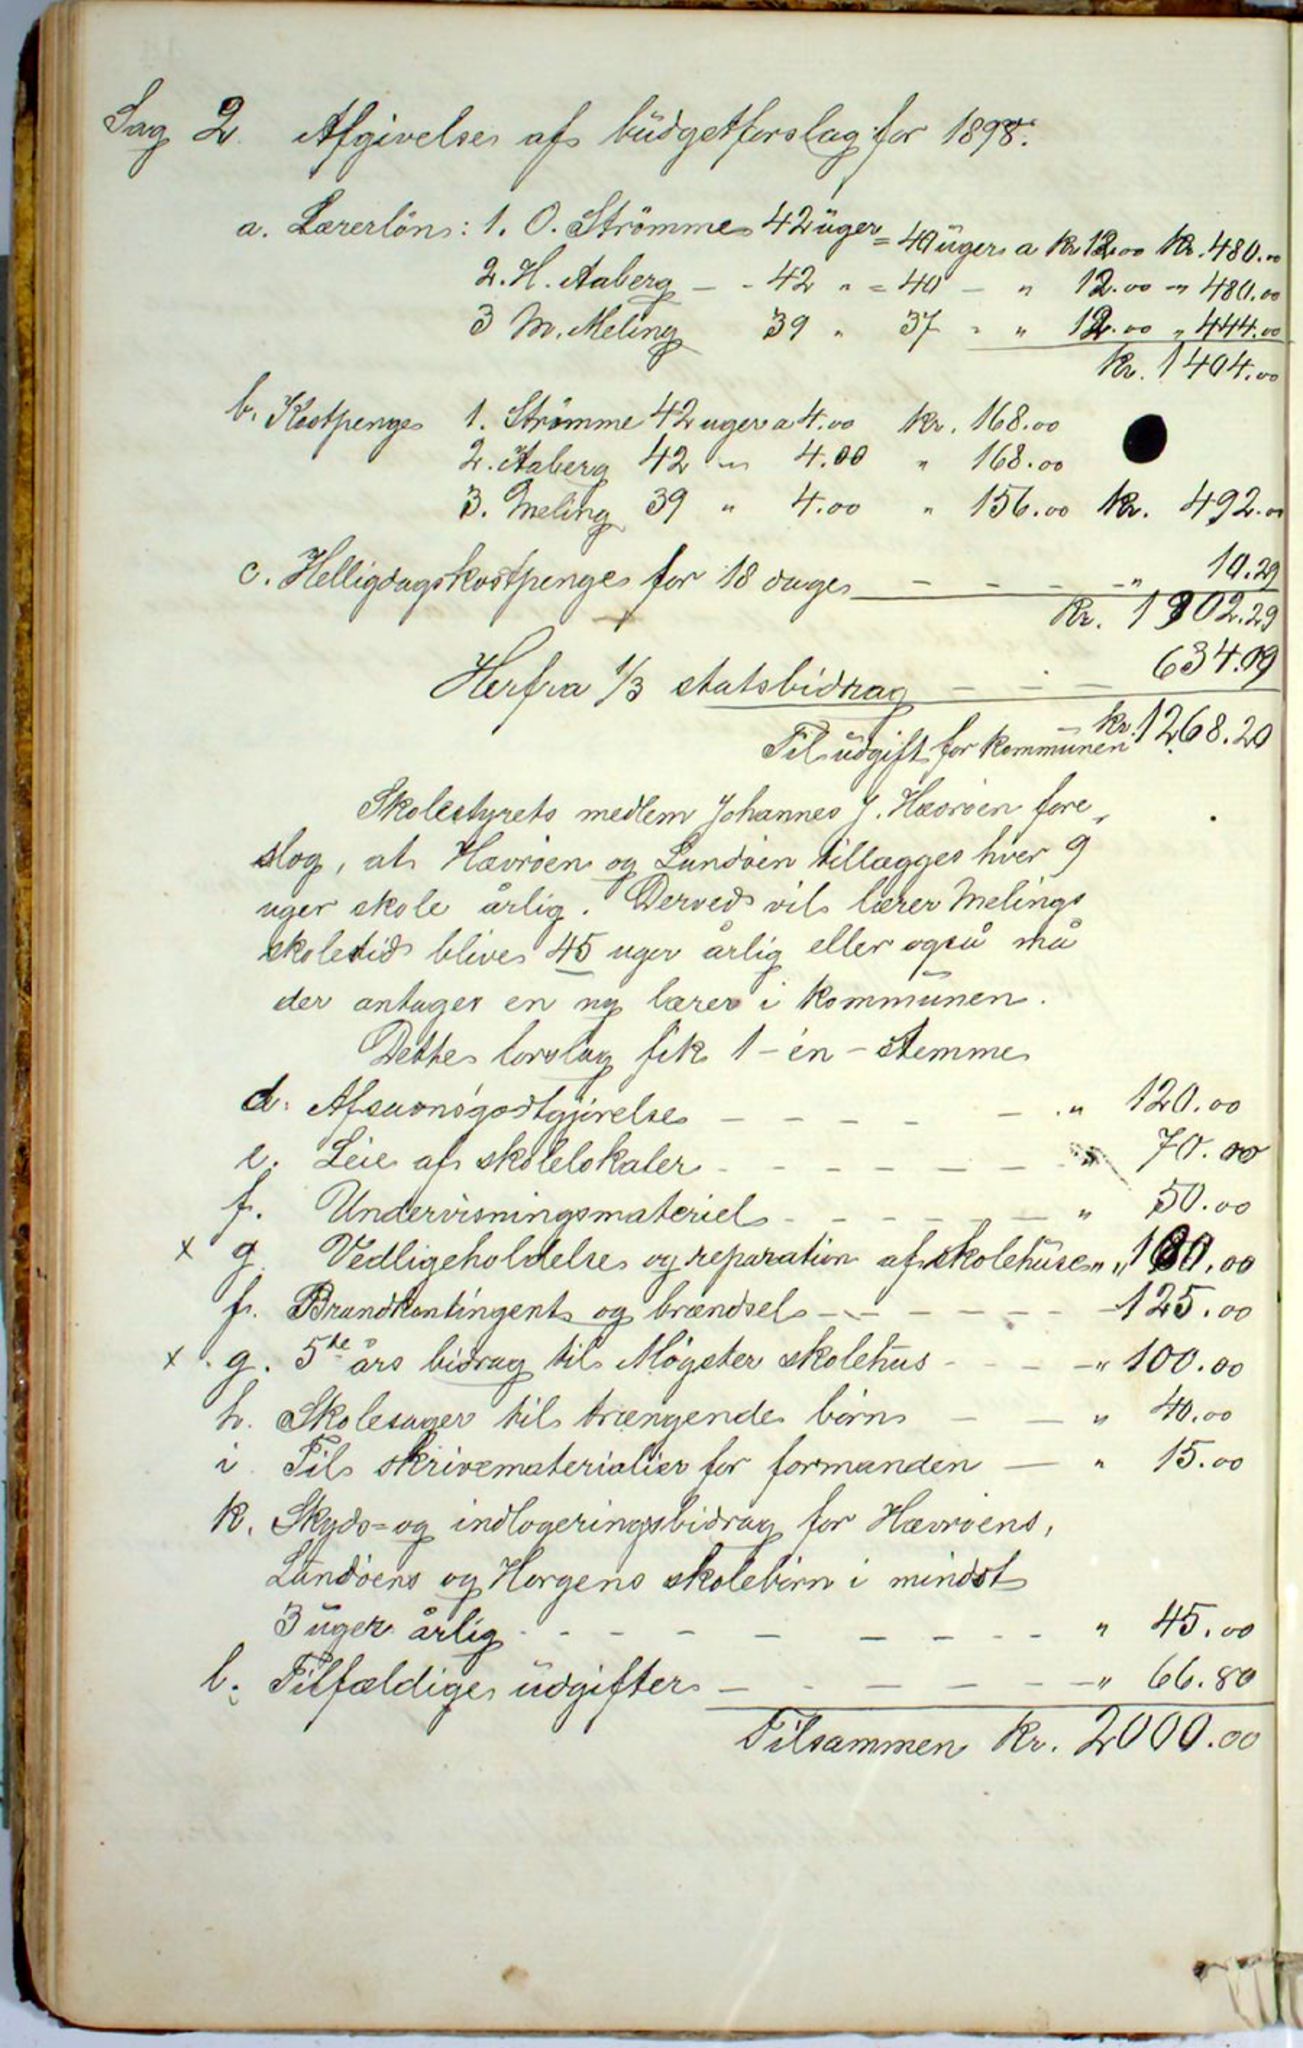 Sag 2. Afgivelse af büdgetforslag for 1898.
a. Lærerlön: 1. O. Strömme 42 üger = 40 üger a kr 12.00 kr. 480.00
2. H. Aaberg - - 42 " = 40 - " 12.00 - " 480.00
3 M. Meling 39 " 37 - " 12.00 " 444.00
kr. 1404.00
b. Kostpenge 1. Strömme 42 uger a 4.00 kr. 168.00
2. Aaberg 42 - " 4.00 " 168.00
3. Meling 39 " 4.00 " 156.00 kr. 492.00
c. Helligdagskostpenge for 18 dage - - - - " 10.29
kr. 1902.29
Herfra 1/3 statsbidrag - - - 634.09
Til üdgift for kommünen kr. 1268.20
Skolestyrets medlem Johannes J. Hævröen fore„
slog, at Hævröen og Lundöen tillægges hver 9
uger skole årlig. Derved vil lærer Melings
skoletid blive 45 uger årlig eller også må
der antages en ny lærer i kommünen.
Dette forslag fik 1 - én - stemme
d. Afsavnsgodtgjörelse - - - - - . " 120.00
e. Leie af skolelokaler - - - - - - - " 70.00
f. Undervisningsmateriel - - - - - - " 50.00
x g. Vedligeholdelse og reparation af skolehüse " " 100.00
f. Brandkontingent og brændsel - - - - - - - 125.00
x . g. 5te års bidrag til Møgster skolehüs - - - - " 100.00
h. Skolesager til trængende börn - - " 40.00
i Til skrivematerialier for formanden - " 15.00
k. Skyds= og indlogeringsbidrag for Hævröens,
Lündöens og Horgens skolebörn i mindst
3 üger årlig - - - - - - - - - " 45.00
l. Tilfældige üdgifter - - - - - - " 66.80
Tilsammen kr. 2000.00